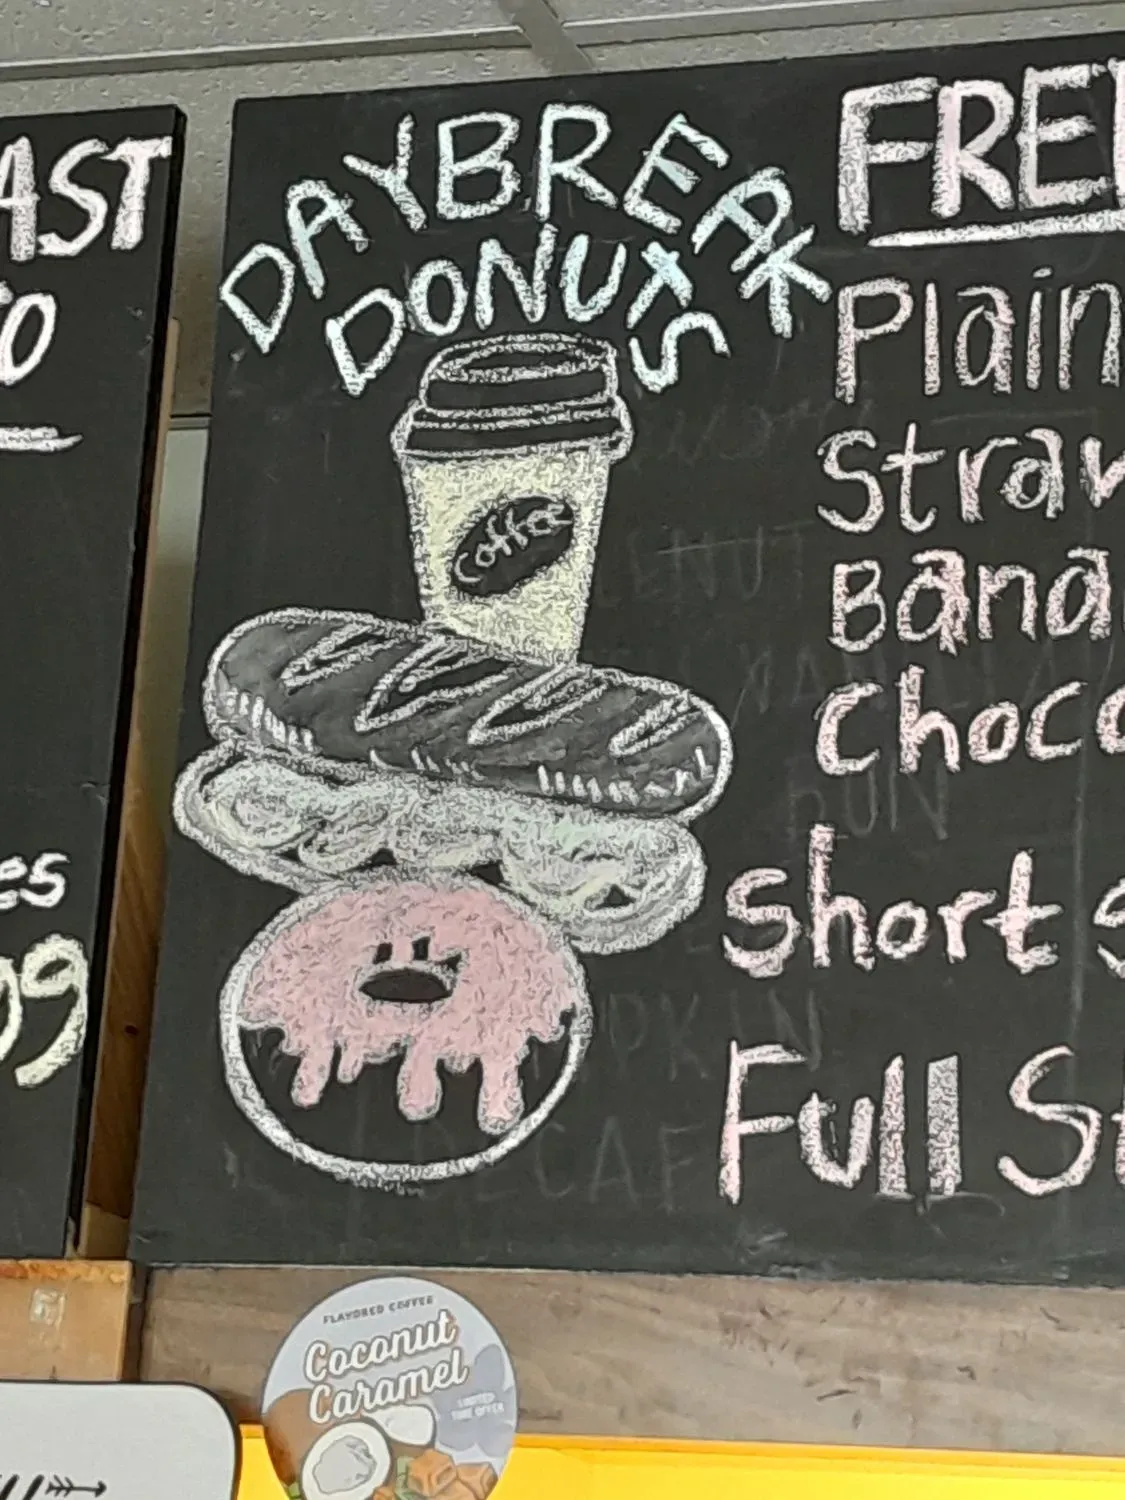 AST
TO
es
99
DAYBREAK
DONUTS
coffee
FRE
Plain
Straw
Bana
Choco
Short S
Full St
DECAF
FLAVORED COFFEE
Coconut
Caramel
LIMITED-
TIME OFFER